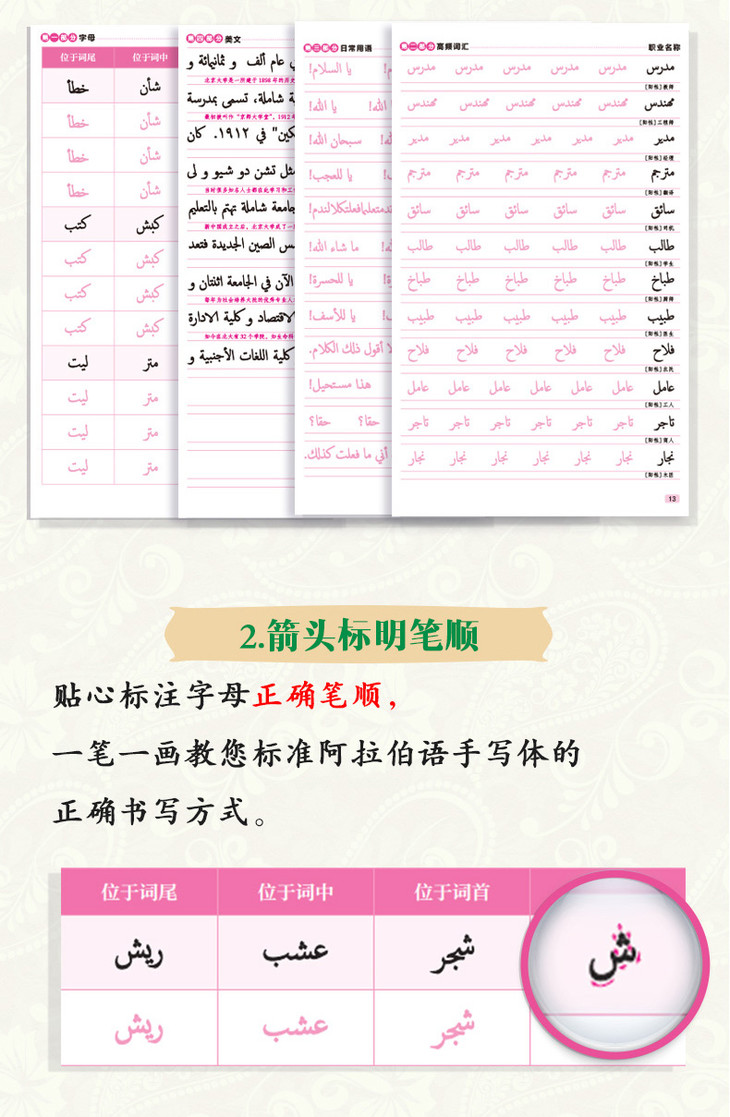 第一部分 字母
位于词尾 位于词中
خطأ شأن
خطأ شأن
خطأ شأن
خطأ شأن
كتب كبش
كتب كبش
كتب كبش
كتب كبش
ليت متر
ليت متر
ليت متر
ليت متر
第四部分 美文
ي عام ألف و ثمانمائة و
北京大学是一所建于1898年的历史
ة شاملة، تسمى بمدرسة
最初被叫作“京师大学堂”，1912年
كين" في ١٩١٢. كان
مثل تشن دو شيو و لى
当时很多知名人士都在此学习和工
جامعة شاملة تهتم بالتعليم
新中国成立之后，北京大学成了一
س الصين الجديدة فتعد
الآن في الجامعة اثنتان و
لاقتصاد و كلية الادارة
如今北大有32个学院，
كلية اللغات الأجنبية و
第三部分 日常用语
يا السلام!
يا الله! الله!
سبحان الله!
يا للعجب!
ما شاء الله!
يا للحسرة!
يا للأسف!
لا أقول ذلك الكلام.
هذا مستحيل!
حقا؟ حقا؟
أني ما فعلت كذلك.
第二部分 高频词汇 职业名称
مدرس مدرس مدرس مدرس مدرس مدرس
[阳性]教师
مهندس مهندس مهندس مهندس مهندس مهندس
[阳性]工程师
مدير مدير مدير مدير مدير مدير مدير
[阳性]经理
مترجم مترجم مترجم مترجم مترجم مترجم
[阳性]翻译
سائق سائق سائق سائق سائق سائق
[阳性]司机
طالب طالب طالب طالب طالب طالب
[阳性]学生
طباخ طباخ طباخ طباخ طباخ طباخ
[阳性]厨师
طبيب طبيب طبيب طبيب طبيب طبيب
[阳性]医生
فلاح فلاح فلاح فلاح فلاح فلاح
[阳性]农民
عامل عامل عامل عامل عامل عامل عامل
[阳性]工人
تاجر تاجر تاجر تاجر تاجر تاجر تاجر
[阳性]商人
نجار نجار نجار نجار نجار نجار نجار
[阳性]木匠
13
2.箭头标明笔顺
贴心标注字母正确笔顺，
一笔一画教您标准阿拉伯语手写体的
正确书写方式。
位于词尾 位于词中 位于词首
ريش عشب شجر ش
ريش عشب شجر